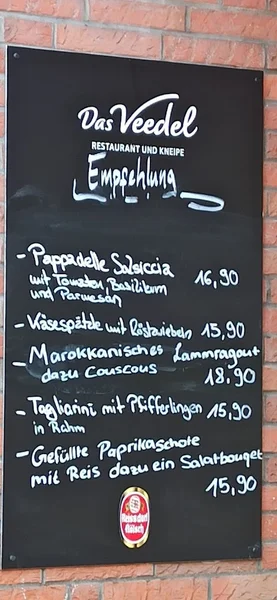 Das Veedel
RESTAURANT UND KNEIPE
Empfehlung
- Pappadelle Salsiccia
mit Tomaten, Basilikum 16,90
und Parmesan
- Käsespätzle mit Röstzwiebeln 15,90
- Marokkanisches Lammragout
dazu Couscous 18.90
- Tagliarini mit Pfifferlingen 15,90
in Rahm
- Gefüllte Paprikaschote
mit Reis dazu ein Salatbouget
15,90
Reissdorf
Kölsch